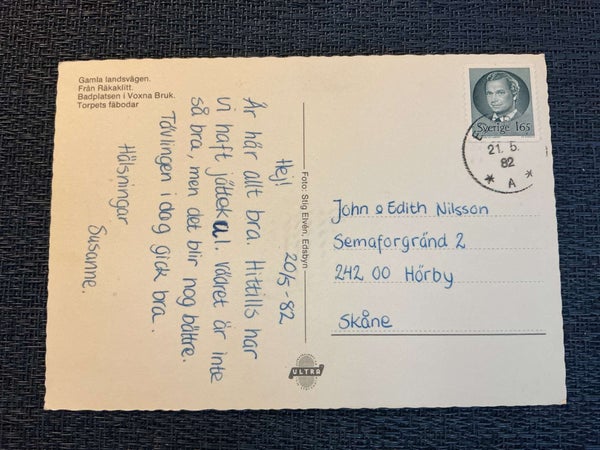 Gamla landsvägen.
Från Råkaklitt.
Badplatsen i Voxna Bruk.
Torpets fäbodar
Hej! 20/5-82
Är här allt bra. Hittills har
vi haft jättekul. Vädret är inte
så bra, men det blir nog bättre.
Tävlingen i dag gick bra.
Hälsningar
Susanne.
Foto: Stig Elvén, Edsbyn
ULTRA
Sverige 165
21. 5.
82
* A *
John o Edith Nilsson
Semaforgränd 2
242 00 Hörby
Skåne